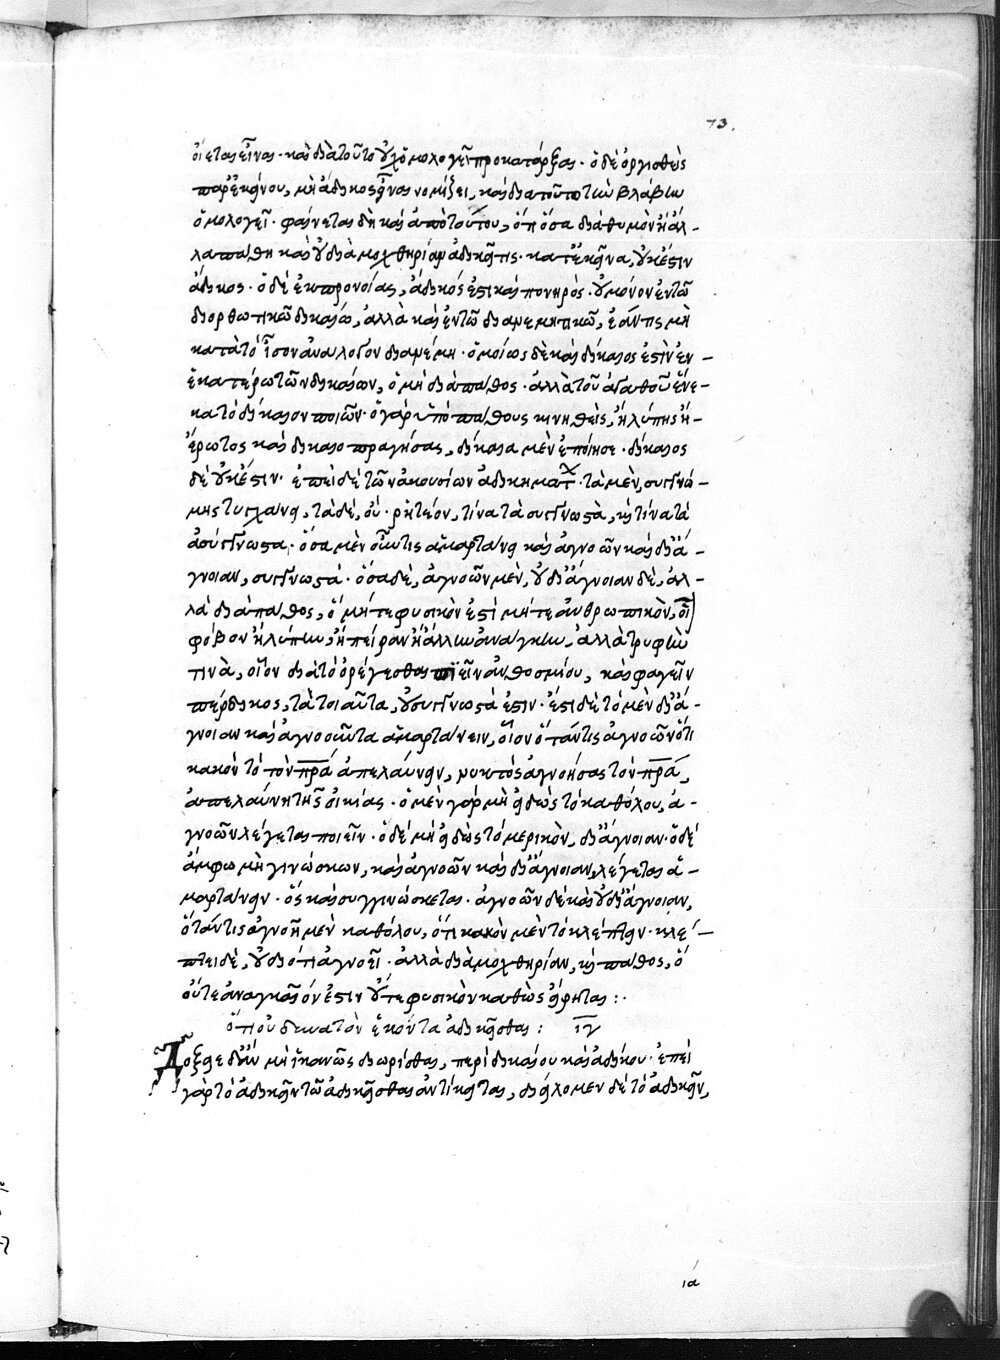 73.
οἴεται εἶναι· καὶ διὰ τοῦτο οὐχ ὁμολογεῖ προκατάρξαι· ὁ δὲ ὀργισθεὶς
παρ' ἐκείνου, μὴ ἄδικος εἶναι νομίζει, καὶ διὰ τοῦτο τὴν βλάβην
ὁμολογεῖ· φαίνεται δὴ καὶ ἀπὸ τούτου, ὅτι ὅσα διὰ θυμὸν ἢ ἄλ-
λα πάθη καὶ οὐ διὰ μοχθηρίαν ἀδικεῖ τις· κατ' ἐκεῖνα, οὐκ ἔστιν
ἄδικος· ὁ δὲ ἐκ προνοίας, ἄδικός ἐστι καὶ πονηρός· οὐ μόνον ἐν τῷ
διορθωτικῷ δικαίῳ, ἀλλὰ καὶ ἐν τῷ διανεμητικῷ, ἐάν τις μὴ
κατὰ τὸ ἴσον ἀνάλογον διανέμη· ὁμοίως δὲ καὶ δίκαιος ἐστὶν ἐν
ἑκατέρω τῶν δικαίων, ὁ μὴ διὰ πάθος· ἀλλὰ τοῦ ἀγαθοῦ ἕνε-
κα τὸ δίκαιον ποιῶν· ὁ γὰρ ὑπὸ πάθους κινηθεὶς, ἢ λύπης ἢ
ἔρωτος καὶ δικαιοπραγήσας, δίκαια μὲν ἐποίησε· δίκαιος
δὲ οὐκ ἔστιν· ἐπεὶ δὲ τῶν ἀκουσίων ἀδικημάτ· τὰ μὲν, συγγνώ-
μης τυγχάνει, τὰ δὲ, οὐ· ῥητέον, τίνα τὰ συγγνωστὰ, καὶ τίνα τὰ
ἀσύγγνωστα· ὅσα μὲν οὖν τις ἁμαρτάνει καὶ ἀγνοῶν καὶ δι' ἄ-
γνοιαν, συγγνωστά· ὅσα δὲ, ἀγνοῶν μὲν, οὐ δι' ἄγνοιαν δὲ, ἀλ-
λὰ διὰ πάθος, ὃ μήτε φυσικὸν ἐστὶ μήτε ἀνθρωπικὸν, οἷ
φόβον ἢ λύπην, ἢ πεῖραν ἢ ἄλλην ἀνάγκην, ἀλλὰ τρυφὴν
τινὰ, οἷον διὰ τὸ ὀρέγεσθαι πιεῖν ἀνθοσμίου, καὶ φαγεῖν
πέρδικος, τὰ τοιαῦτα, οὐ συγγνωστά ἐστιν· ἔστι δὲ τὸ μὲν δι' ἄ-
γνοιαν καὶ ἀγνοοῦντα ἁμαρτάνειν, οἷον ὅταν τις ἀγνοῶν ὅτι
κακὸν τὸ τὸν πρα ἀπελαύνειν, νυκτὸς ἀγνοήσας τὸν πρα,
ἀπελαύνη τῆς οἰκίας· ὁ μὲν γὰρ μὴ εἰδὼς τὸ καθόλου, ἀ-
γνοῶν λέγεται ποιεῖν· ὁ δὲ μὴ εἰδὼς τὸ μερικὸν, δι' ἄγνοιαν· ὁ δὲ
ἄμφω μὴ γινώσκων, καὶ ἀγνοῶν καὶ δι' ἄγνοιαν, λέγεται ἁ-
μαρτάνειν· ὃς καὶ συγγινώσκεται· ἀγνοῶν δὲ καὶ οὐ δι' ἄγνοιαν,
ὅταν τις ἀγνοῆ μὲν καθόλου, ὅτι κακὸν μὲν τὸ κλέπτειν· κλέ-
πτει δὲ, οὐ διότι ἀγνοεῖ· ἀλλὰ διὰ μοχθηρίαν, καὶ πάθος, ὃ
οὔτε ἀναγκαῖόν ἐστιν οὔτε φυσικὸν καθὼς εἴρηται :·
ὅτι οὐ δυνατὸν ἑκόντα ἀδικεῖσθαι : ιγ
Δόξειε δ' ἂν μὴ ἱκανῶς διωρίσθαι, περὶ δικαίου καὶ ἀδίκου· ἐπεὶ
γὰρ τὸ ἀδικεῖν τῷ ἀδικεῖσθαι ἀντίκειται, διείλομεν δὲ τὸ ἀδικεῖν,
ια